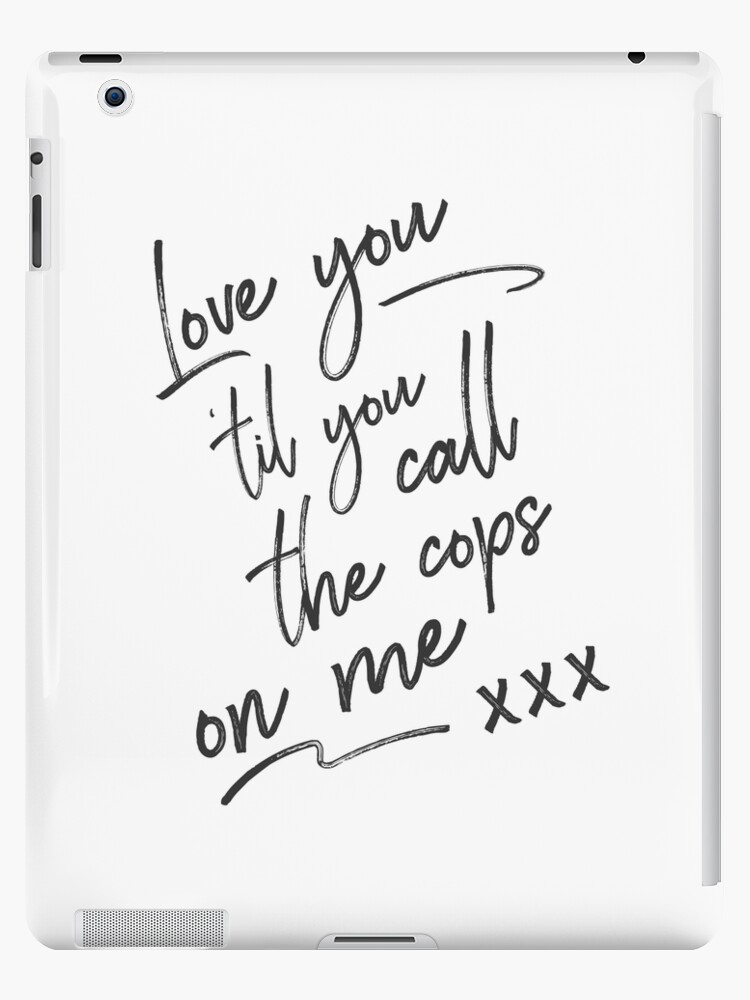 Love you
'til you
call
the cops
on me
xxx